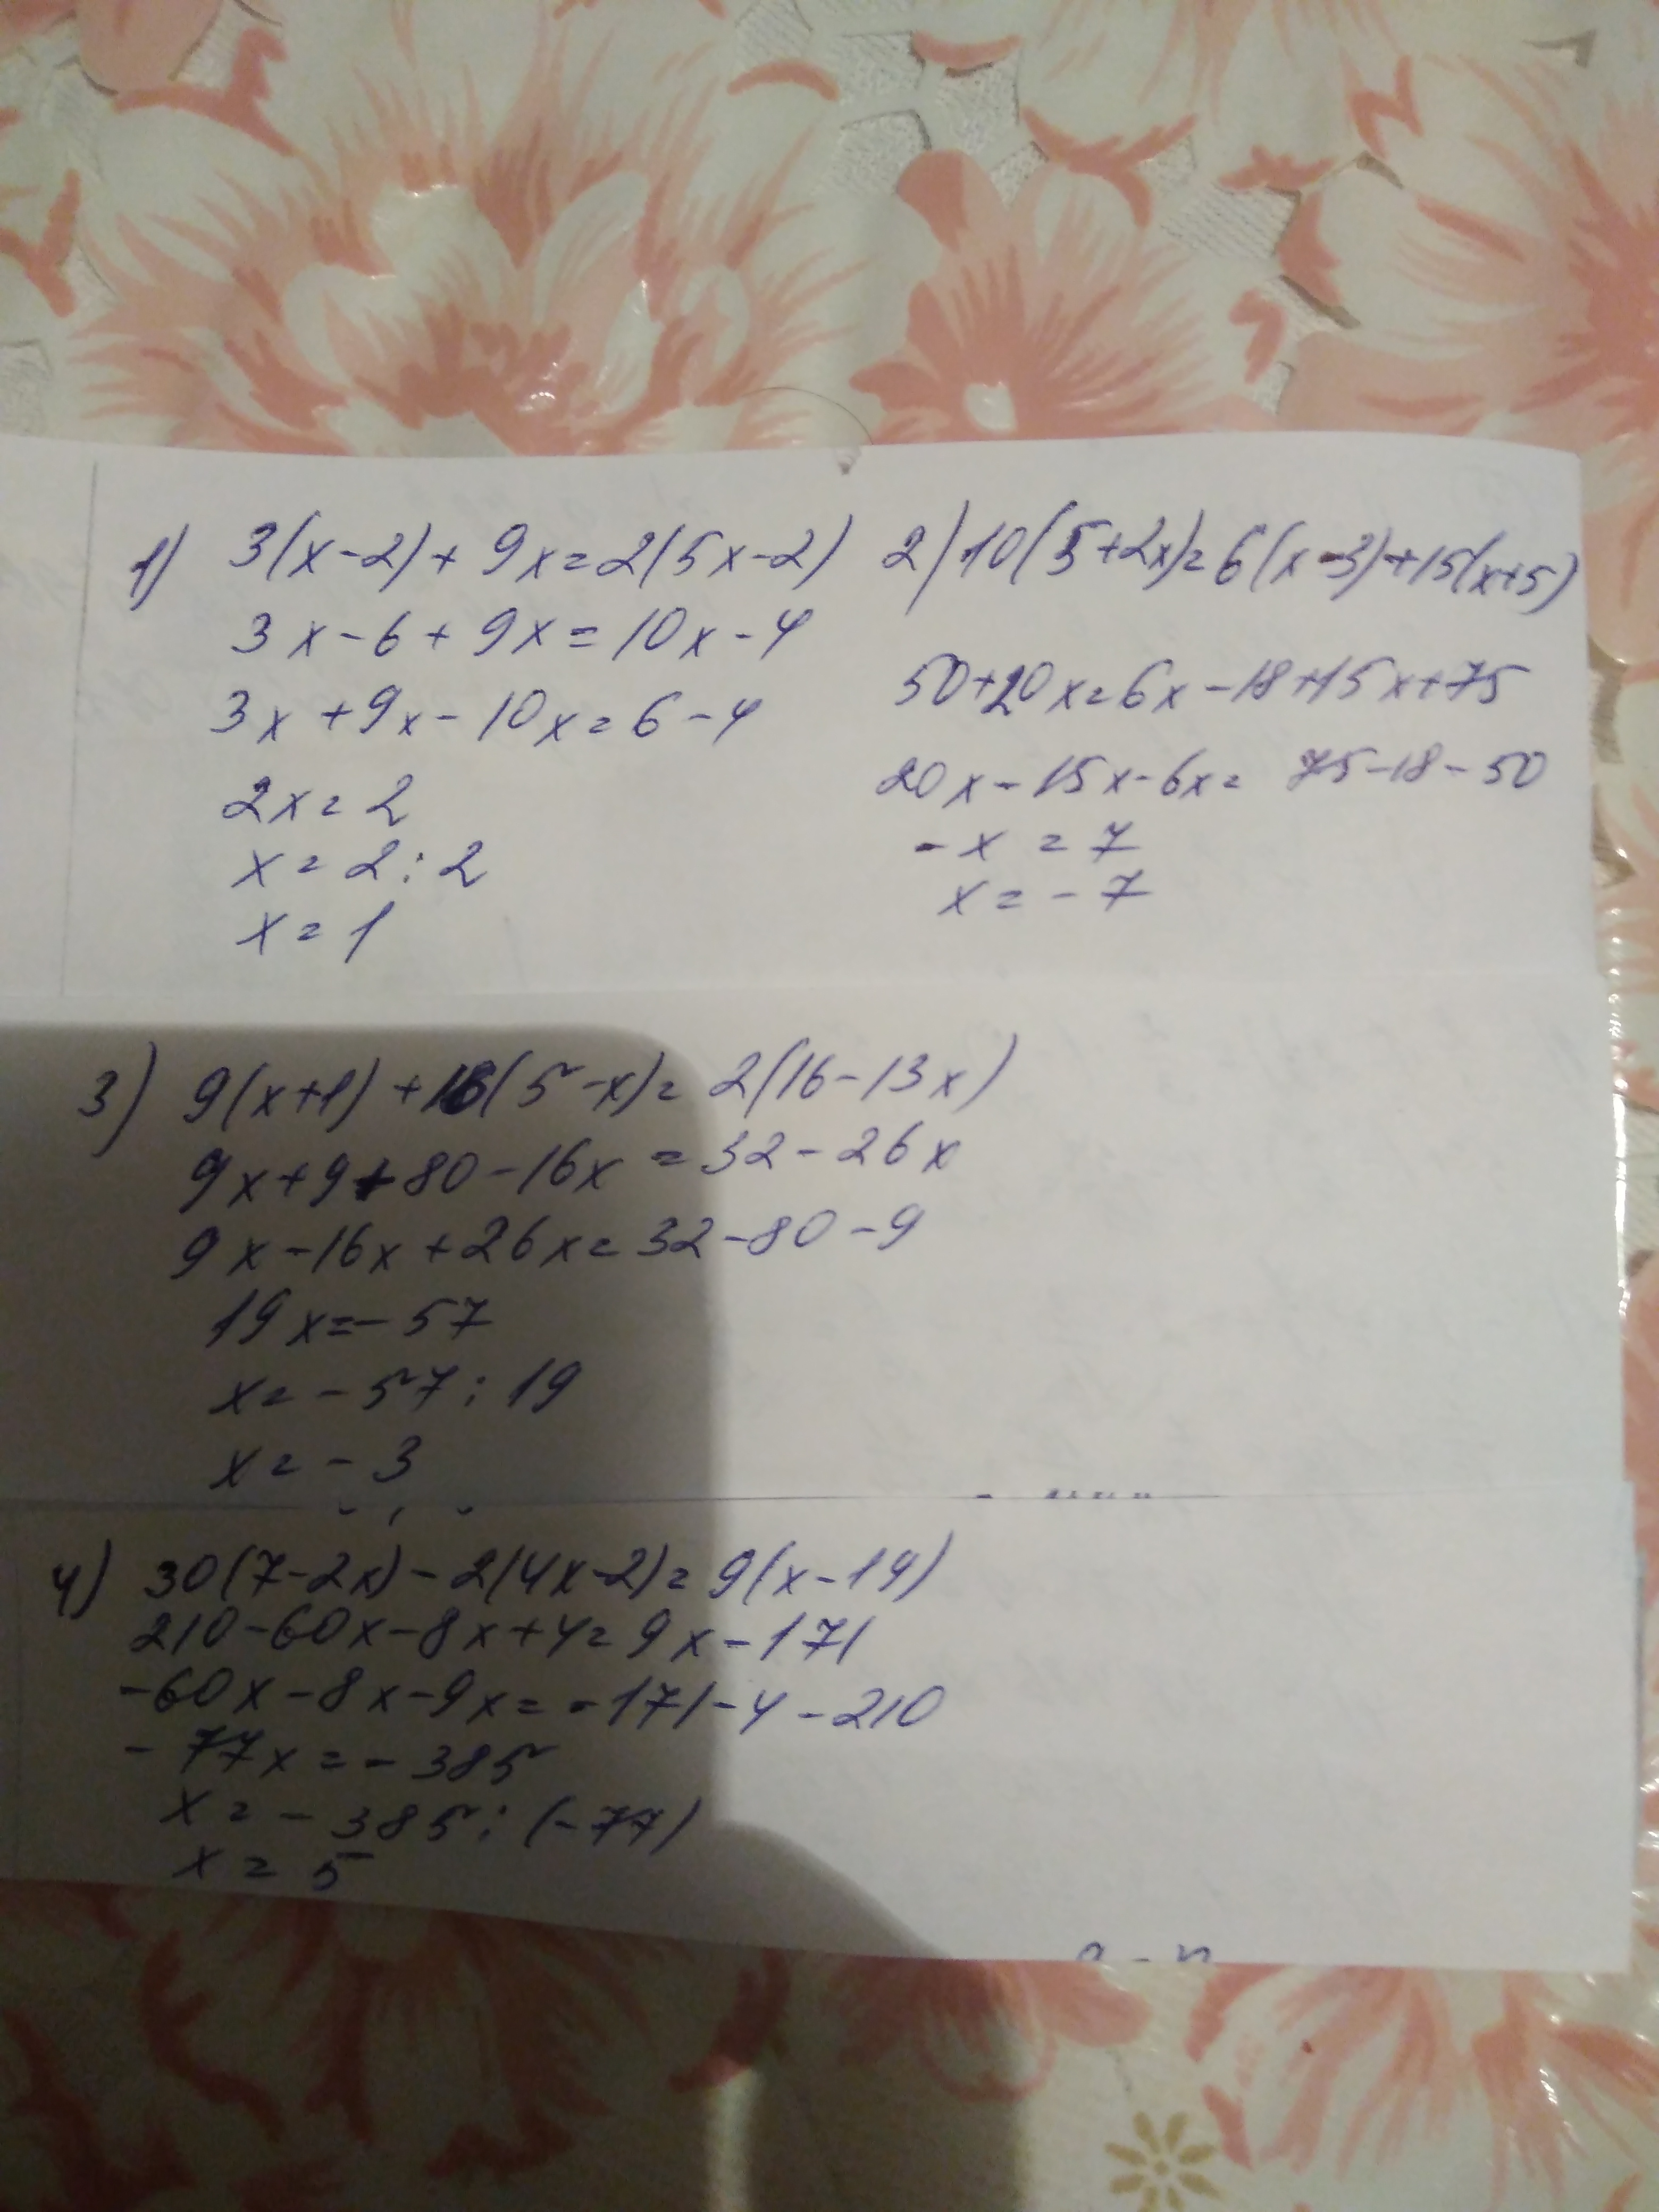 1) 3(x-2)+9x=2(5x-2)
3x-6+9x=10x-4
3x+9x-10x=6-4
2x=2
x=2:2
x=1
2) 10(5+2x)=6(x-3)+15(x+5)
50+20x=6x-18+15x+75
20x-15x-6x= 75-18-50
-x=7
x=-7
3) 9(x+1)+16(5-x)=2(16-13x)
9x+9+80-16x=32-26x
9x-16x+26x=32-80-9
19x=-57
x=-57:19
x=-3
4) 30(7-2x)-2(4x-2)=9(x-19)
210-60x-8x+4=9x-171
-60x-8x-9x=-171-4-210
-77x=-385
x=-385:(-77)
x=5